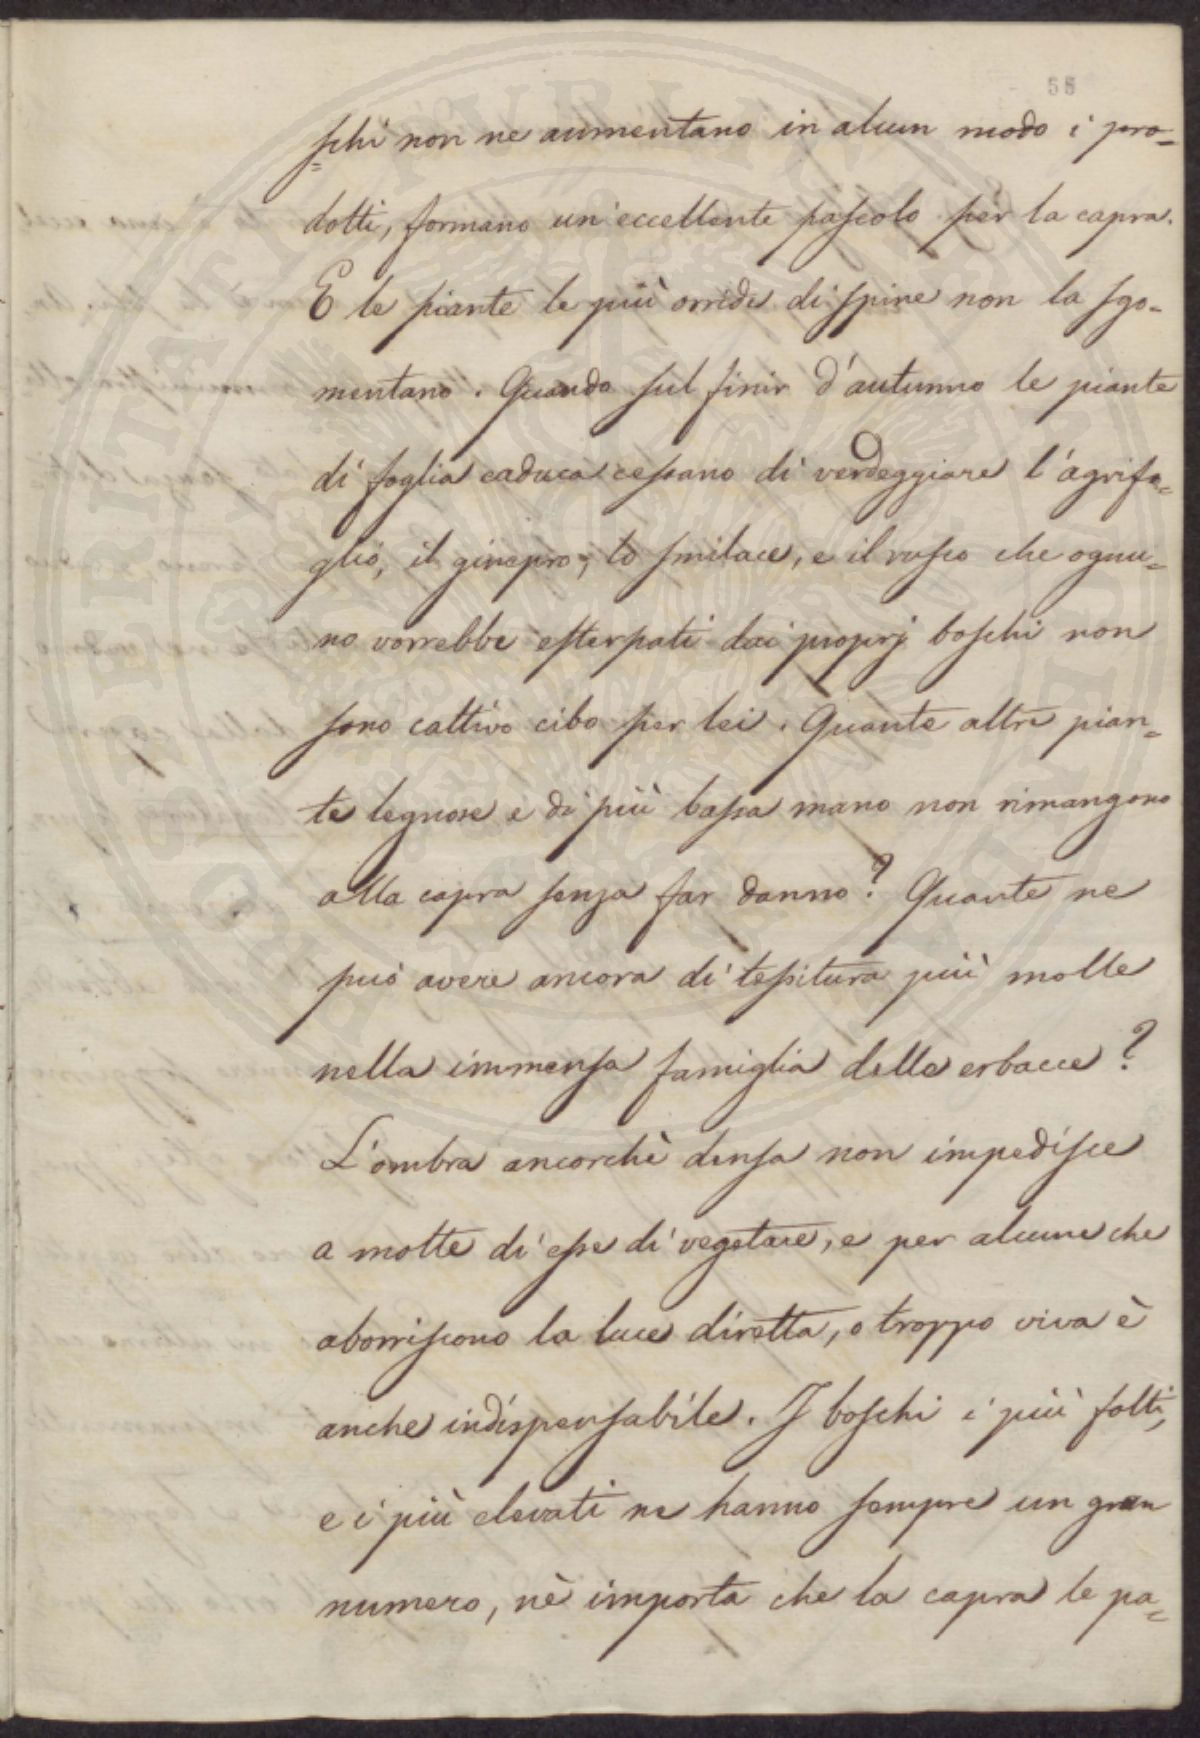 58
schi non ne aumentano in alcun modo i pro=
dotti, formano un'eccellente pascolo per la capra.
E le piante le più orride di spine non la sgo=
mentano. Quando sul finir d'autunno le piante
di foglia caduca cessano di verdeggiare l'agrifo=
glio, il ginepro, lo smilace, e il rusco che ognu=
no vorrebbe esterpati dai proprj boschi non
sono cattivo cibo per lei. Quante altre pian=
te legnose e di più bassa mano non rimangono
alla capra senza far danno? Quante ne
può avere ancora di tessitura più molle
nella immensa famiglia delle erbacce?
L'ombra ancorchè densa non impedisce
a molte di esse di vegetare, e per alcune che
aborriscono la luce diretta, o troppo viva è
anche indispensabile. I boschi i più folti,
e i più elevati ne hanno sempre un gran
numero, nè importa che la capra le pa=